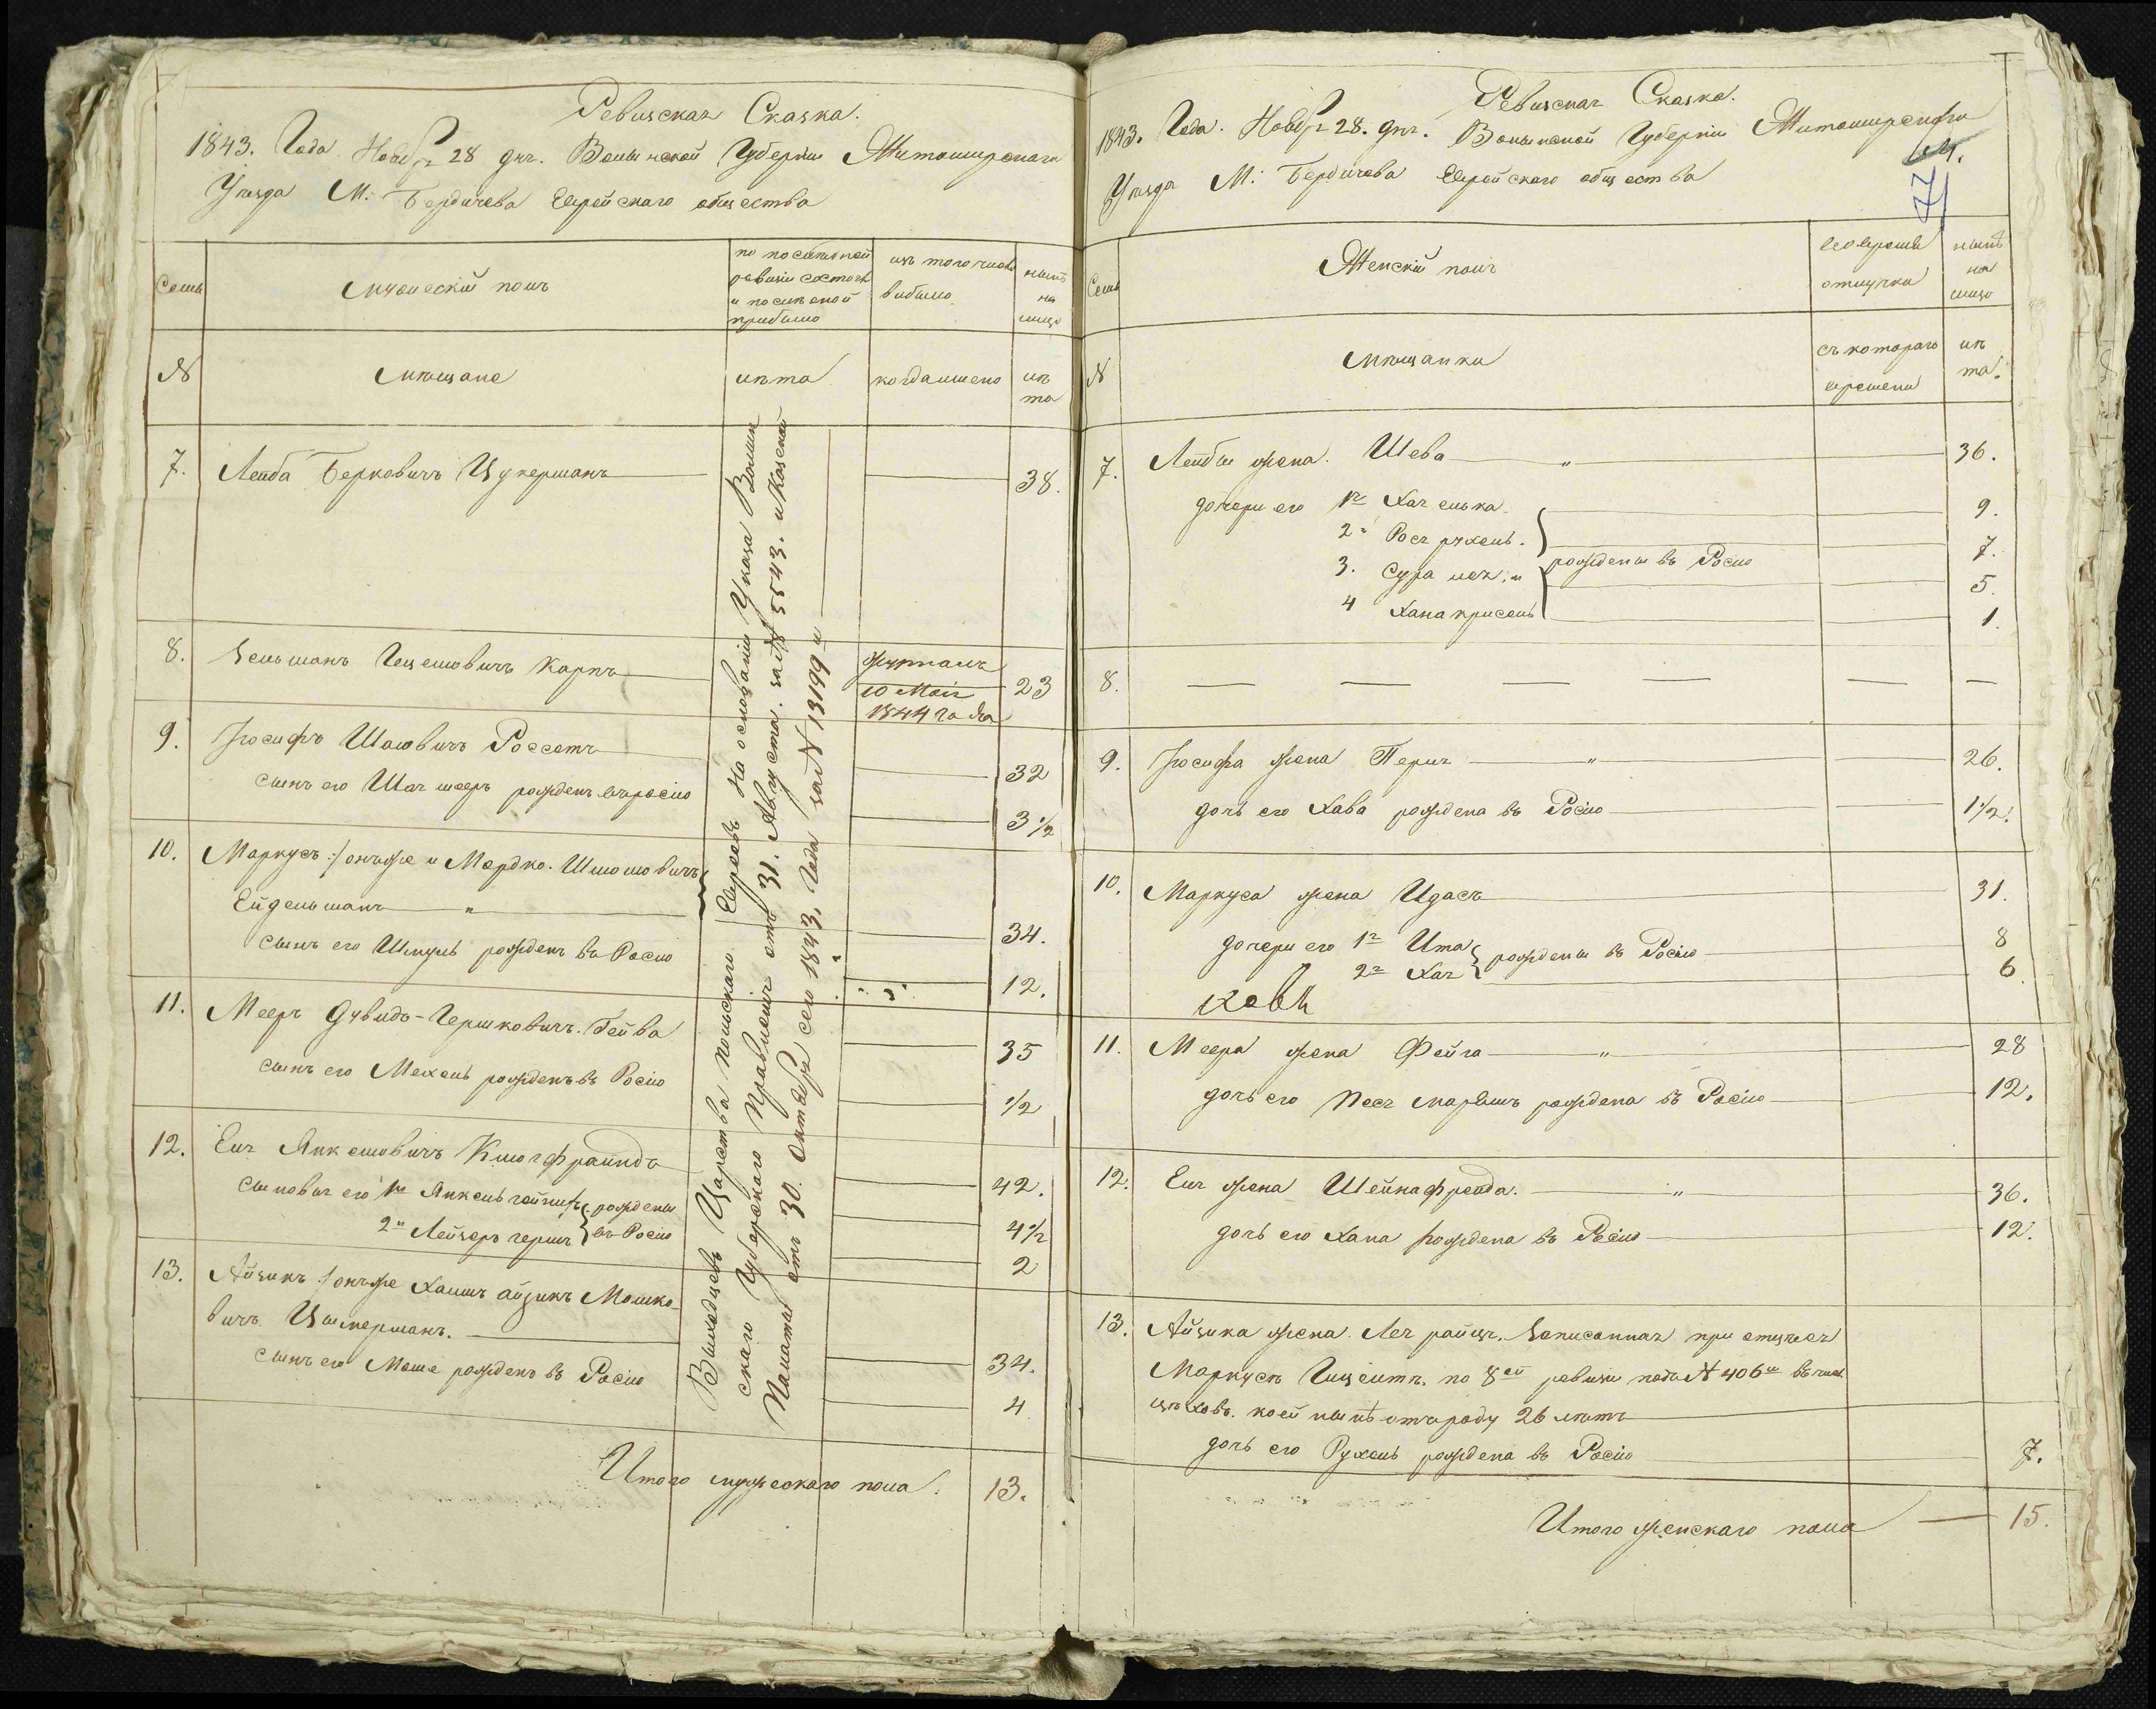 Ревизская Сказка.
1843. Года. Нояб. 28 дня. Волынской Губернии Житомирскаго
Уезда М: Бердичева Еврейскаго общества
Семья
Мужескій полъ
по последней
ревизіи состояло
и после оной
прибыло
изъ того числа
выбыло
нынѣ
на
лицо
№
Мѣщане
лѣта
когда имено
лѣ
та
7. Лейба Берковичъ Цукерманъ 38.
8. Зельманъ Ицековичъ Карпъ 23
журналъ
10 Маія
1844 года
9. Іосифъ Шаювичъ Россетъ 32
сынъ его Шая мееръ рожденъ въ росіи 3 1/2
10. Маркусъ :/ онъ же и Мордко. Шлиомовичъ
Ейдельманъ " 34.
сынъ его Шмуль рожденъ въ Росіи 12.
11. Мееръ Дувидъ-Гершковичъ. Гейва 35
сынъ его Мехель рожденъ въ Росіи 1/2
12. Еля Янкелювичъ Клюгфрайндъ 42.
сыновья его 1й Янкель гейнихъ рождены 4 1/2
2й Лейзеръ гершъ въ Росіи 2
13. Айзикъ :/ онъ же Хаимъ айзикъ Мошко-
вичъ Цымерманъ. 34.
сынъ его Моше рожденъ въ Росіи 4
Итого мужескаго пола. 13.
Выходцевъ Царства Польскаго Евреевъ На основаніи Указа Волын
скаго Губернскаго Правленія отъ 31. Августа. за № 5543. и Казенной
Палаты отъ 30. Октября сего 1843. Года за № 13199 м
Ревизская Сказка.
1843. Года. Нояб. 28. дня. Волынской Губерніи Житомирскаго
Уезда М: Бердичева Еврейскаго общества
71
Семья
Женскій полъ
во времен.
отлучки
нынѣ
на
лицо
№
Мѣщанки
съ котораго
времени
лѣ
та.
7. Лейбы жена. Шева " 36.
дочери его 1я Хая элька. 9.
2я Рося рухель. 7.
рождены въ Росіи
3. Сура лея. " 5.
4 Хана крисель 1.
8. — — — — — —
9. Іосифа жена Перля " 26.
дочь его Хава рождена въ Росіи 1 1/2.
10. Маркуса жена Идасъ 31.
дочери его 1я Ита рождены въ Росіи 8
2я Хая 6
11. Меера жена Фейга " 28
дочь его Песя марьямъ рождена въ Росіи 12.
12. Еля жена Шейнафрейда. " 36.
дочь его Хана рождена въ Росіи 12.
13. Айзика жена. Лея райця. Записанная при отцѣ ея
Маркусѣ по 8ой ревизіи подъ № 406м въ числ.
цеховъ. коей нынѣ отъ роду 26 летъ
дочь его Рухель рождена въ Росіи 7.
Итого женскаго пола — 15.